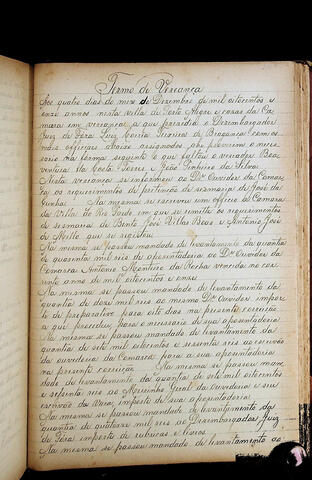 Termo de Vereança
Aos quatro dias do mez de Dezembro de mil oitocentos e
onze annos nesta villa de Porto Alegre e casas da Ca-
mara em vereança a que presidio o Dezembargador
Juiz de Fóra Luiz Corrêa Teixeira de Bragança com os
mais officiaes abaixo assignados ahi proveram o neces-
sario na forma seguinte e que faltou o vereador Boa-
ventura da Costa Torres e João Pinheiro da Silva
Nesta vereança se informou ao Dr. Ouvidor da Comar-
ca os requerimentos de pretenção de sesmaria de José da
Cunha Na mesma se escreveu um officio da Camara
da Villa do Rio Pardo em que se remette os requerimentos
de sesmaria de Bento José Villas Boas e Antonio José
de Mello que se registou
Na mesma se passou mandado de levantamento da quantia
de quarenta mil reis de aposentadoria ao Dr. Ouvidor da
Comarca Antonio Monteiro da Rocha vencida no cor-
rente anno de mil oitocentos e onze
Na mesma se passou mandado de levantamento da
quantia de doze mil reis ao mesmo Dr. Ouvidor impor-
te de preparativo para oito dias na presente correição
a que procedeu, para o necessario de sua aposentadoria
Na mesma se passou mandado de levantamento da
quantia de sete mil oitocentos e sessenta reis ao escrivão
da ouvedoria da Comarca para a sua aposentadoria
na presente correição Na mesma se passou man-
dado de levantamento da quantia de seis mil oitocentos
e setenta reis ao Meirinho Geral da Ouvedoria e seu
escrivão da vara, importe de sua aposentadoria
Na mesma se passou mandado de levantamento da
quantia de quatorze mil reis ao Dezembargador Juiz
de Fóra importe de rubricas e livros
Na mesma se passou mandado de levantamento ao